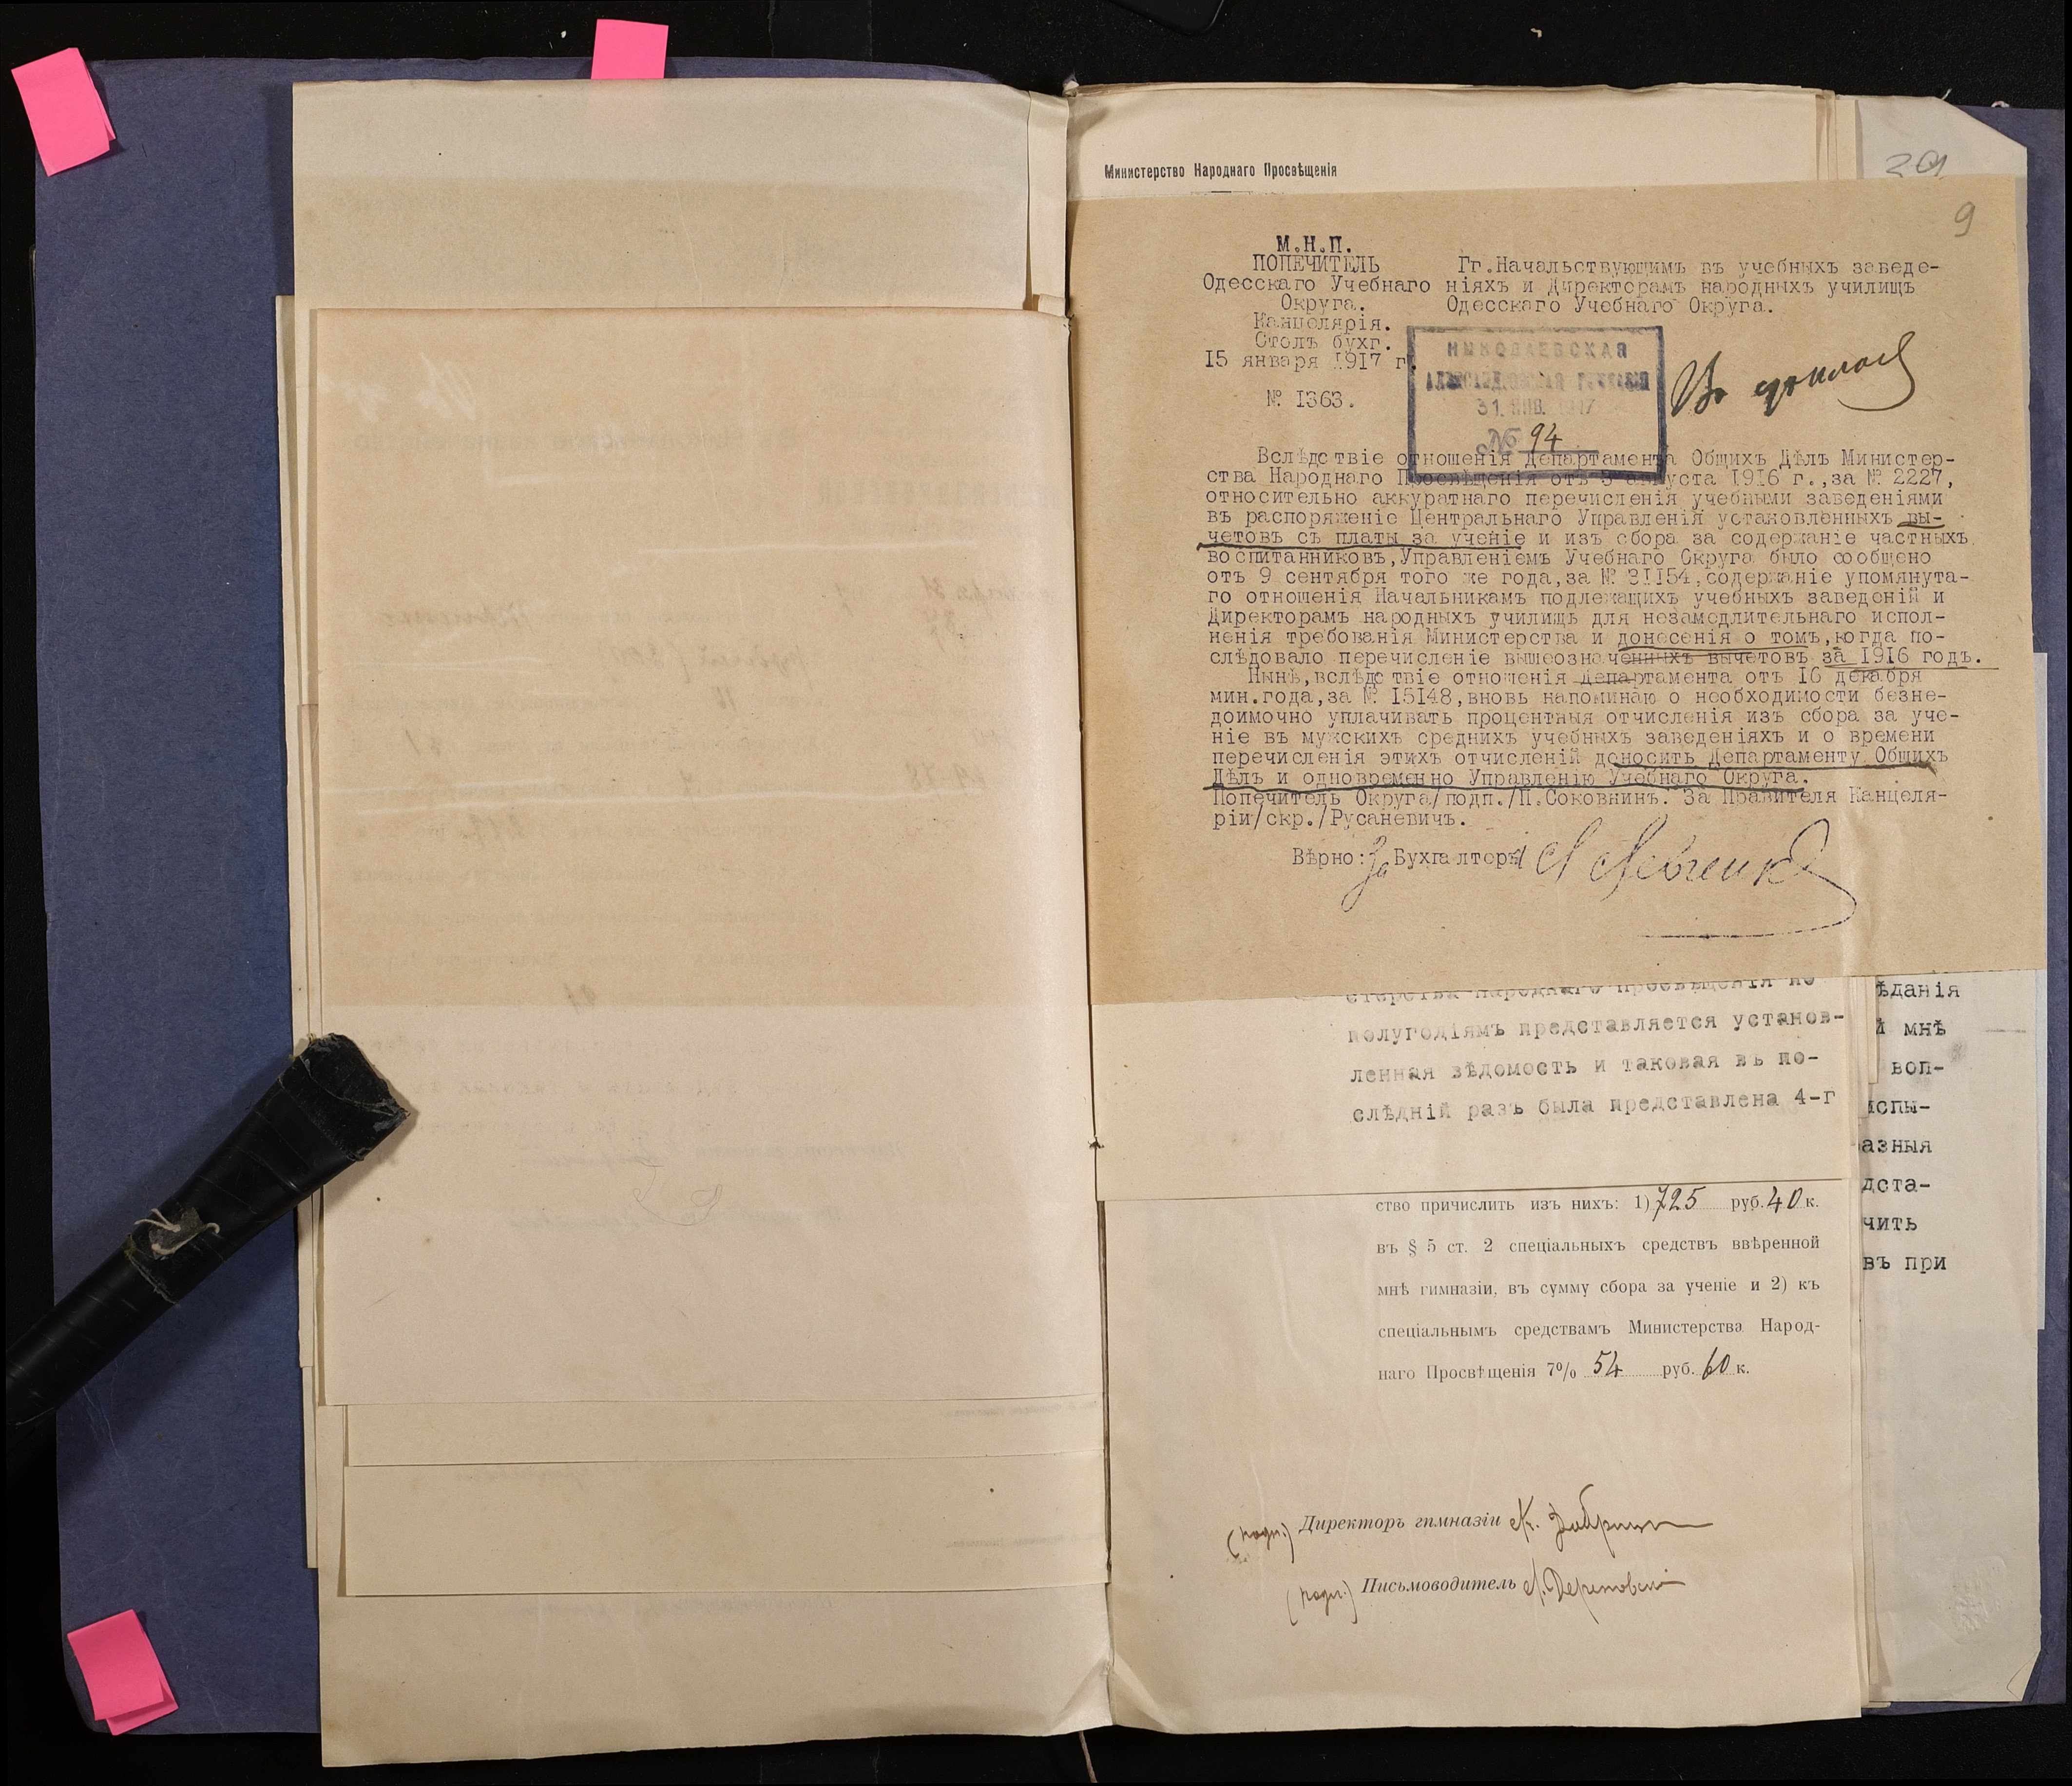 Министерство Народнаго Просвѣщенія
29
9
М.Н.П.
ПОПЕЧИТЕЛЬ
Одесскаго Учебнаго
Округа.
Канцелярія.
Столъ бухг.
15 января 1917 г.
№ 1363.
Гг.Начальствующимъ въ учебныхъ заведе-
ніяхъ и Директорамъ народныхъ училищъ
Одесскаго Учебнаго Округа.
НИКОЛАЕВСКАЯ
АЛЕКСАНДРОВСКАЯ ГИМНАЗІЯ
31. ЯНВ. 1917
№ 94
Вслѣдствіе отношенія Департамента Общихъ Дѣлъ Министер-
ства Народнаго Просвѣщенія отъ 3 августа 1916 г.,за № 2227,
относительно аккуратнаго перечисленія учебными заведеніями
въ распоряженіе Центральнаго Управленія установленныхъ вы-
четовъ съ платы за ученіе и изъ сбора за содержаніе частныхъ
воспитанниковъ,Управленіемъ Учебнаго Округа было сообщено
отъ 9 сентября того же года,за № 31154,содержаніе упомянута-
го отношенія Начальникамъ подлежащихъ учебныхъ заведеній и
Директорамъ народныхъ училищъ для незамедлительнаго испол-
ненія требованія Министерства и донесенія о томъ,когда по-
слѣдовало перечисленіе вышеозначенныхъ вычетовъ за 1916 годъ.
Нынѣ,вслѣдствіе отношенія Департамента отъ 16 декабря
мин.года,за № 15148,вновь напоминаю о необходимости безне-
доимочно уплачивать процентныя отчисленія изъ сбора за уче-
ніе въ мужскихъ среднихъ учебныхъ заведеніяхъ и о времени
перечисленія этихъ отчисленій доносить Департаменту Общихъ
Дѣлъ и одновременно Управленію Учебнаго Округа.
Попечитель Округа/подп./П.Соковнинъ. За Правителя Канцеля-
ріи/скр./Русановичъ.
Вѣрно: За Бухгалтера Левченко
стерства Народнаго Просвѣщенія по
полугодіямъ представляется установ-
ленная вѣдомость и таковая въ по-
слѣдній разъ была представлена 4-г
ѣданія
й мнѣ
воп-
испы-
азныя
дста-
чить
въ при
ство причислить изъ нихъ: 1) 725 руб. 40 к.
въ § 5 ст. 2 спеціальныхъ средствъ ввѣренной
мнѣ гимназіи, въ сумму сбора за ученіе и 2) къ
спеціальнымъ средствамъ Министерства Народ-
наго Просвѣщенія 7% 54 руб. 60 к.
(подп.) Директоръ гимназіи
(подп.) Письмоводитель